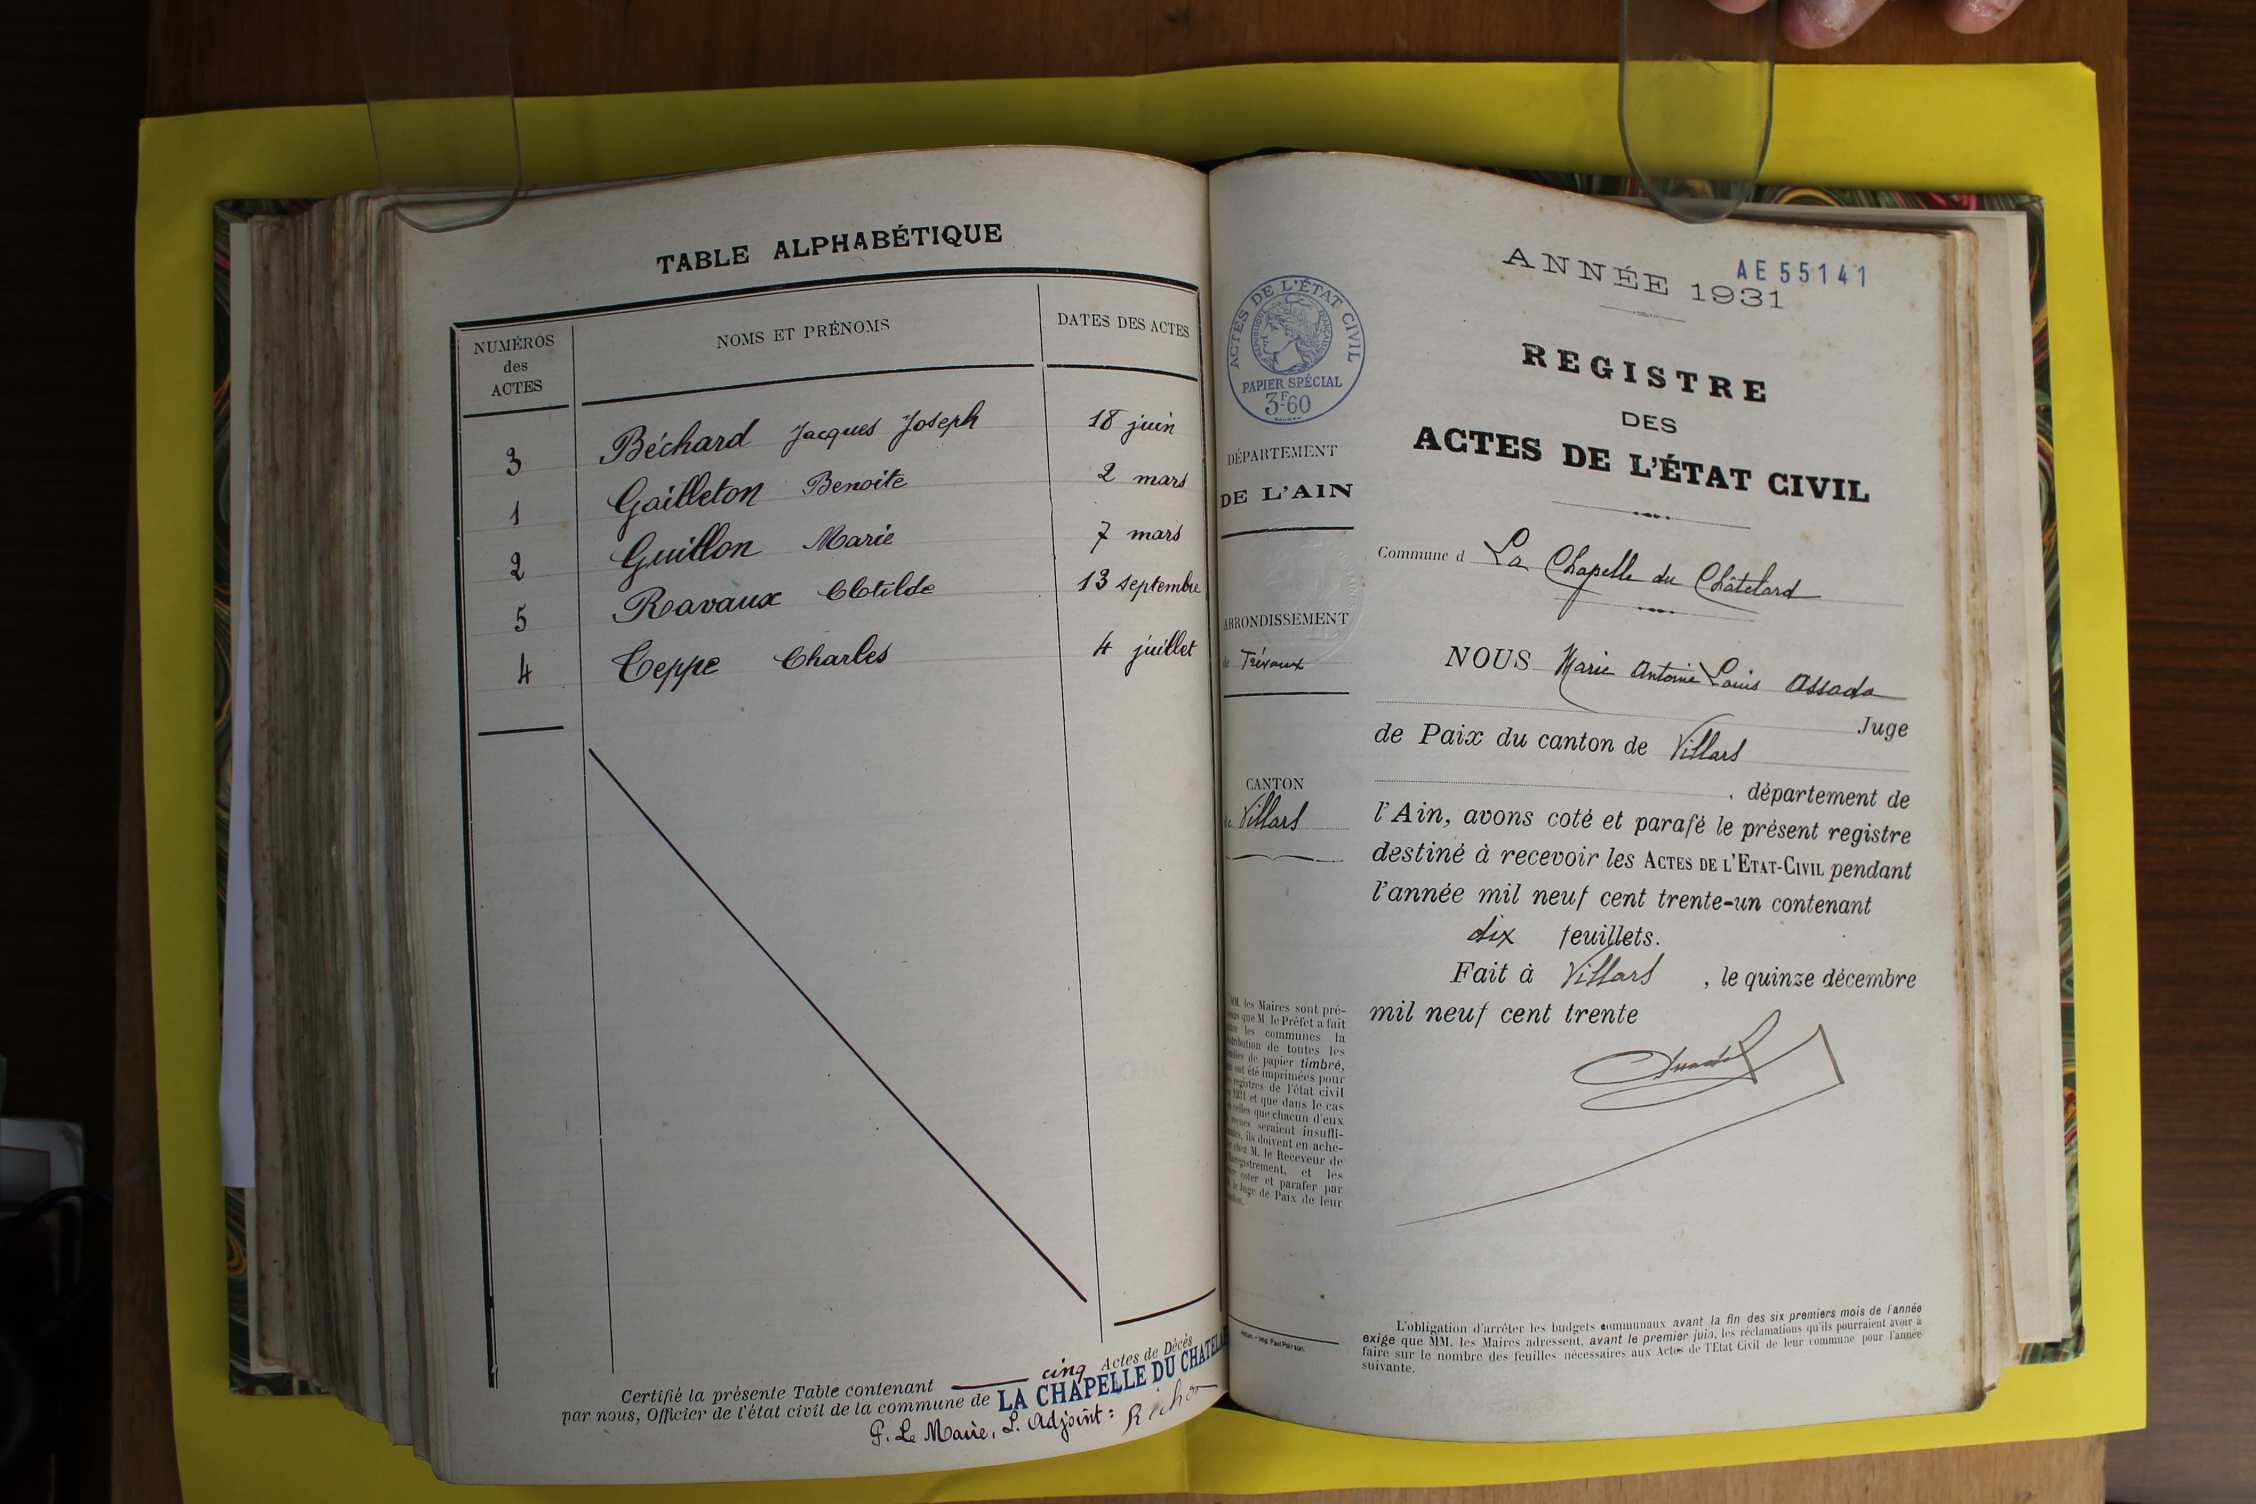 TABLE ALPHABÉTIQUE
NUMÉROS des ACTES
NOMS ET PRÉNOMS
DATES DES ACTES
3 Béchard Jacques Joseph 18 juin
1 Gailleton Benoite 2 mars
2 Guillon Marie 7 mars
5 Ravaux Clotilde 13 septembre
4 Teppe Charles 4 juillet
Certifié la présente Table contenant cinq Actes de Décès
par nous, Officier de l'état civil de la commune de LA CHAPELLE DU CHATELA
P. Le Maire, L. Adjoint:
ANNÉE 1931
AE 55141
ACTES DE L'ÉTAT CIVIL
RÉPUBLIQUE FRANÇAISE
PAPIER SPÉCIAL
3F.60
DÉPARTEMENT
DE L'AIN
ARRONDISSEMENT
de Trévoux
CANTON
de Villars
REGISTRE
DES
ACTES DE L'ÉTAT CIVIL
Commune d La Chapelle du Châtelard
NOUS Marie Antoine Louis Assada
Juge
de Paix du canton de Villars
, département de
l'Ain, avons coté et parafé le présent registre
destiné à recevoir les ACTES DE L'ETAT-CIVIL pendant
l'année mil neuf cent trente-un contenant
dix feuillets.
Fait à Villars, le quinze décembre
mil neuf cent trente
MM. les Maires sont pré-
que M. le Préfet a fait
les communes la
de toutes les
de papier timbré,
ont été imprimées pour
registres de l'état civil
1931 et que dans le cas
celles que chacun d'eux
seraient insuffi-
ils doivent en ache-
chez M. le Receveur de
et les
coter et parafer par
le Juge de Paix de leur
L'obligation d'arrêter les budgets communaux avant la fin des six premiers mois de l'année
exige que MM. les Maires adressent, avant le premier juin, les réclamations qu'ils pourraient avoir à
faire sur le nombre des feuilles nécessaires aux Actes de l'Etat Civil de leur commune pour l'année
suivante.